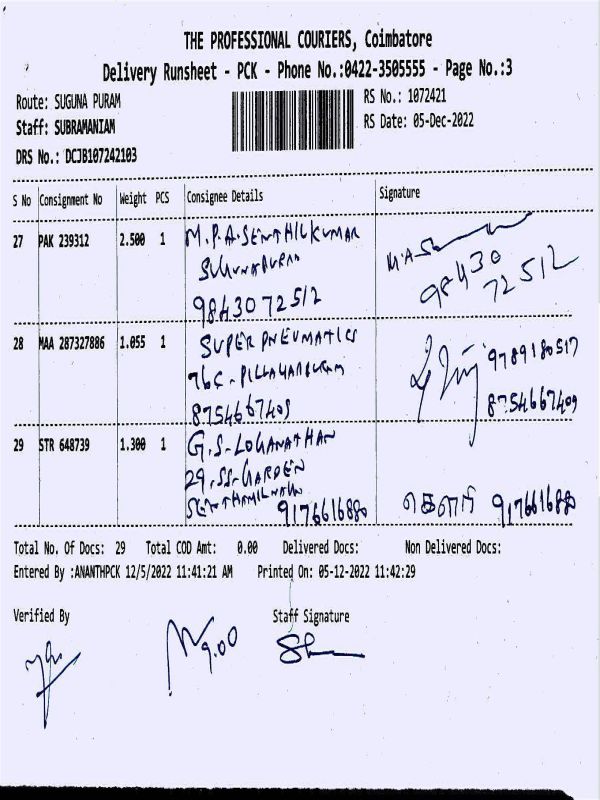 THE PROFESSIONAL COURIERS, Coimbatore
Delivery Runsheet - PCK - Phone No.:0422-3505555 - Page No.:3
Route: SUGUNA PURAM
RS No.: 1072421
Staff: SUBRAMANIAM
RS Date: 05-Dec-2022
DRS No.: DCJB107242103
S No Consignment No Weight PCS Consignee Details Signature
27 PAK 239312 2.500 1 M.P.A.SENTHILKUMAR
98430 72512
9843072512
28 MAA 287327886 1.055 1 SUPER PNEUMATICS
9789180517
76C-
8754667409 8754667409
29 STR 648739 1.300 1 G.S-LOGANATHAN
29,SS-GARDEN
9176616880 கௌரி 9176616880
Total No. Of Docs: 29 Total COD Amt: 0.00 Delivered Docs: Non Delivered Docs:
Entered By :ANANTHPCK 12/5/2022 11:41:21 AM Printed On: 05-12-2022 11:42:29
Verified By Staff Signature
9.00